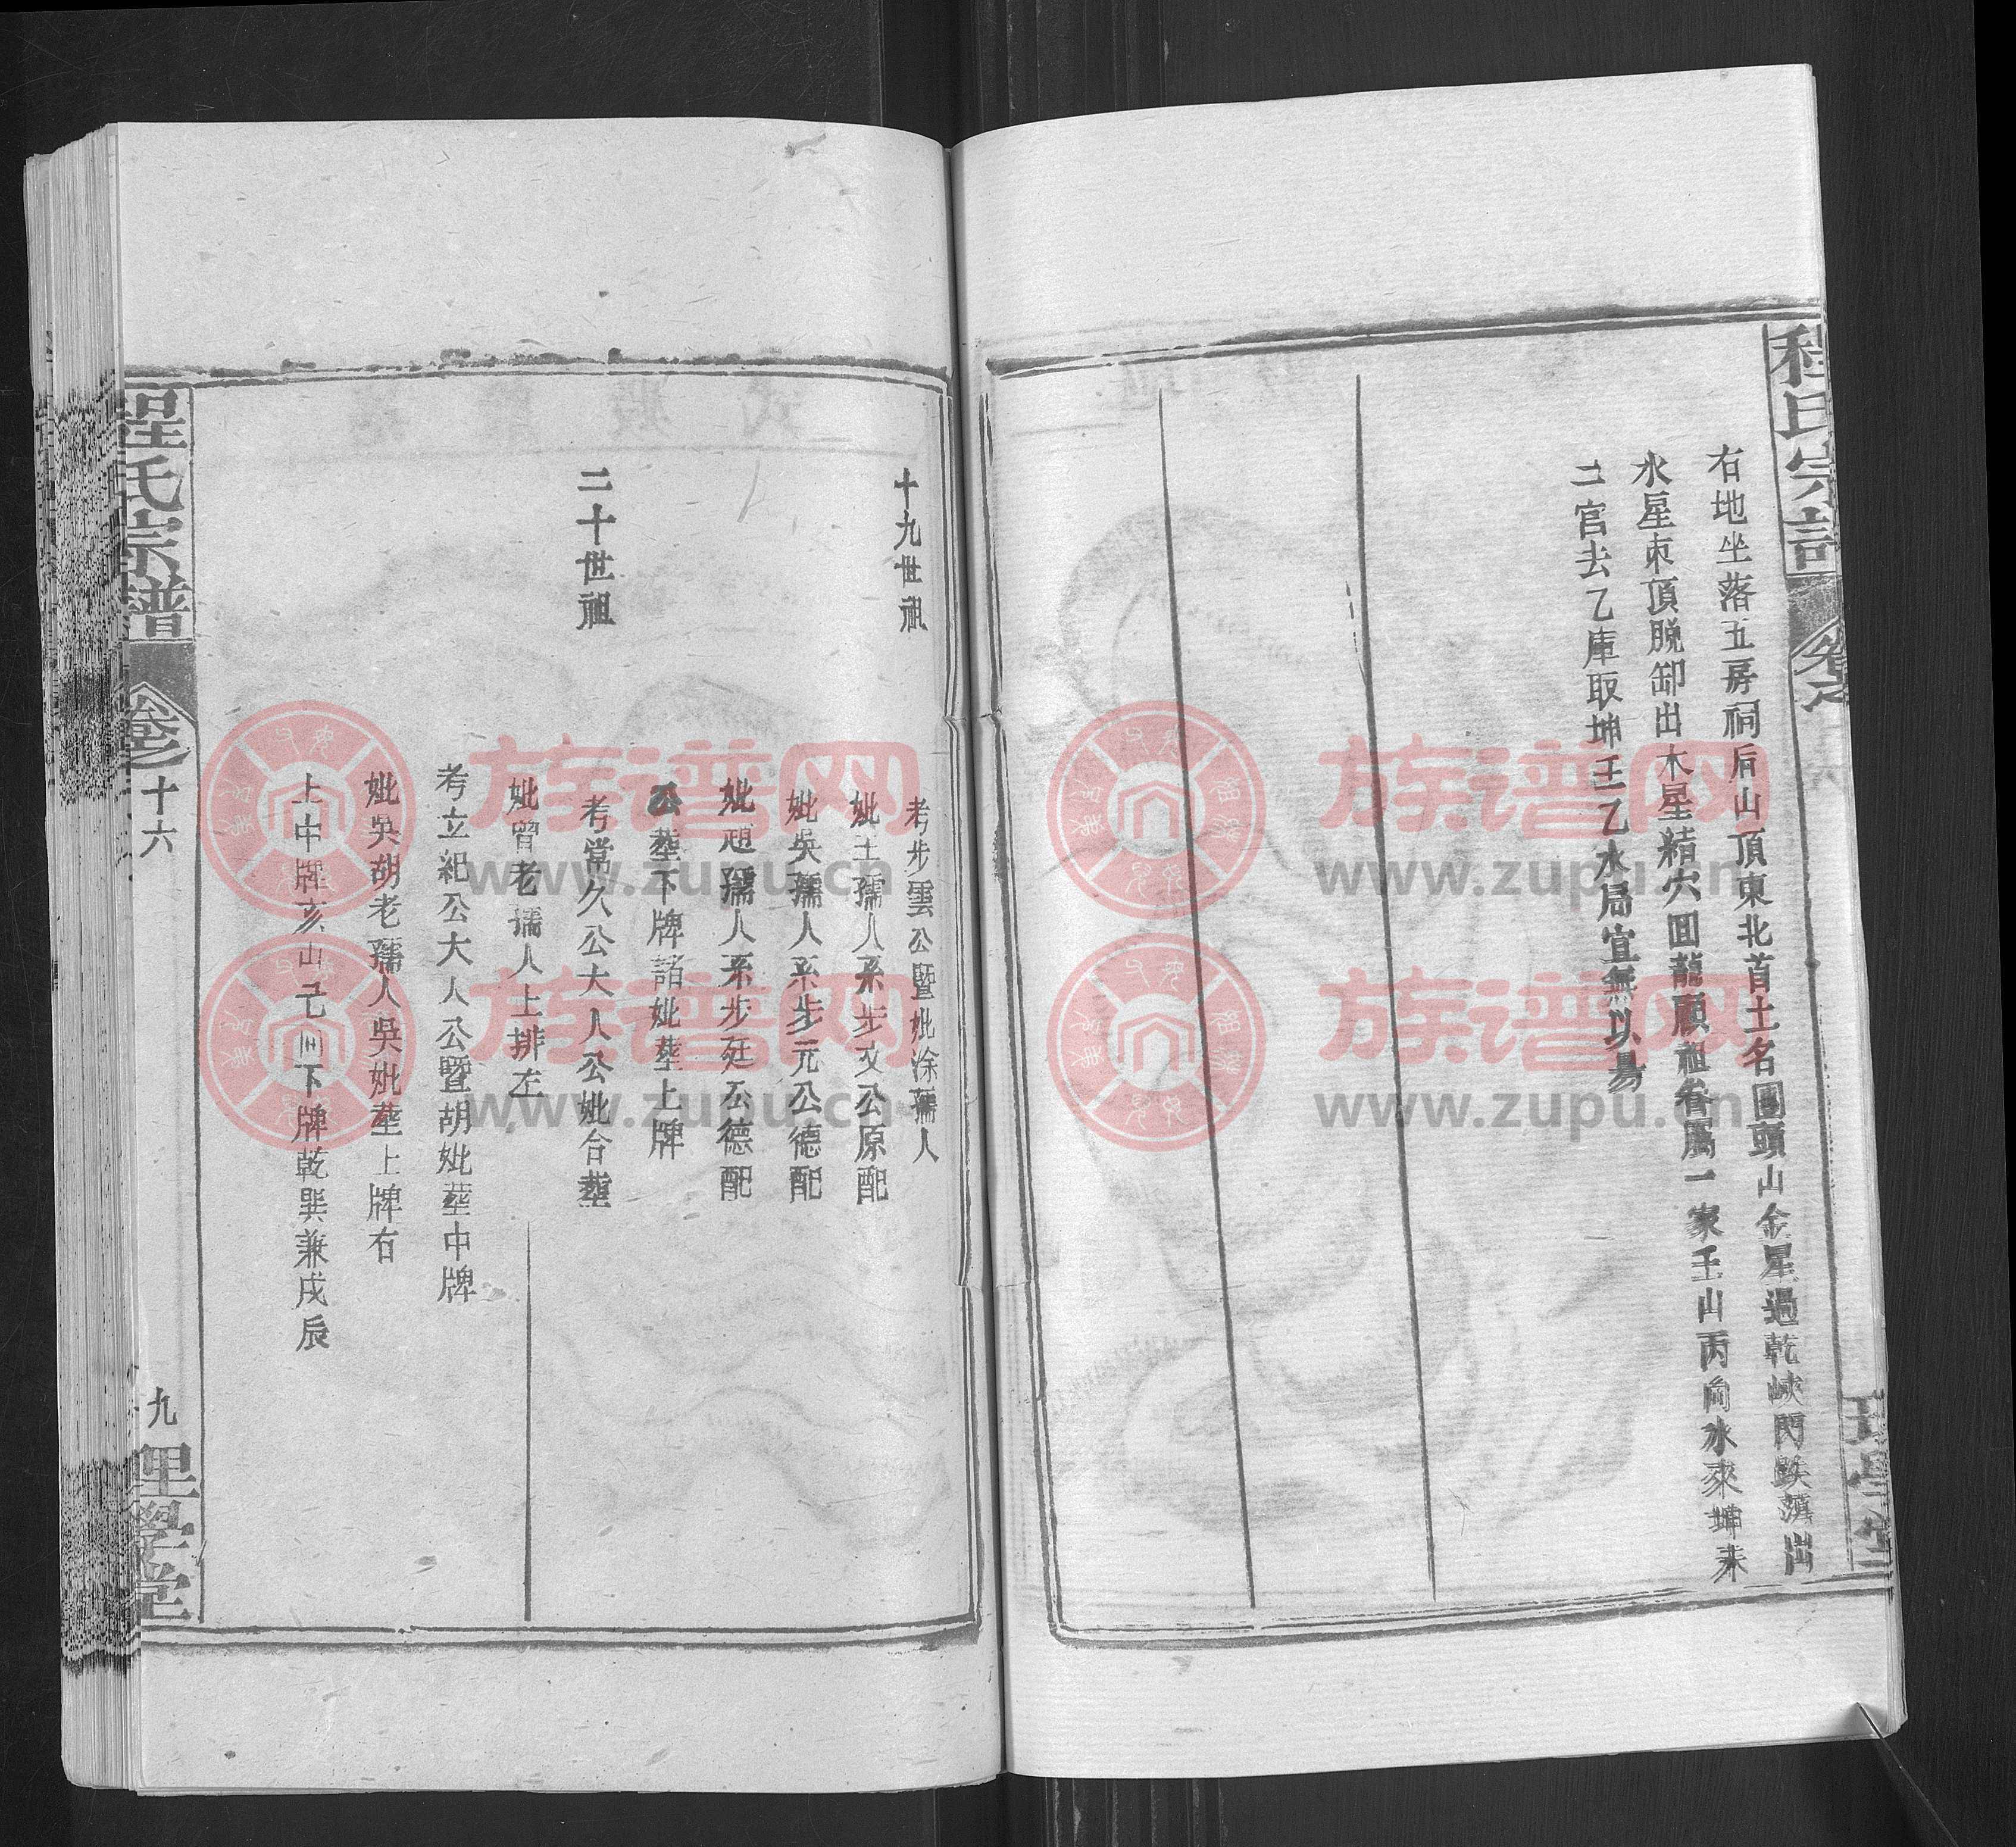 程氏宗譜
卷之
右地坐落五房祠后山頂東北首土名團頭山金星過乾峽閃跌濱出
水星束頂脫卸出木星精穴回龍顧祖眷屬一家壬山丙向水來坤未
二宮去乙庫取坤壬乙水局宜無以易
理學堂
十九世祖
考步雲公暨妣涂孺人
妣王孺人系步文公原配
妣吳孺人系步元公德配
妣趙孺人系步廷公德配
公塟下牌諸妣塟上牌
二十世祖
考常久公大人公妣合塟
妣曾老孺人上排左
考立紀公大人公暨胡妣塟中牌
妣吳胡老孺人吳妣塟上牌右
上中牌亥山巳向下牌乾巽兼戌辰
程氏宗譜
卷之十六
九
理學堂
族谱网
www.zupu.cn
族谱网
www.zupu.cn
族谱网
www.zupu.cn
族谱网
www.zupu.cn